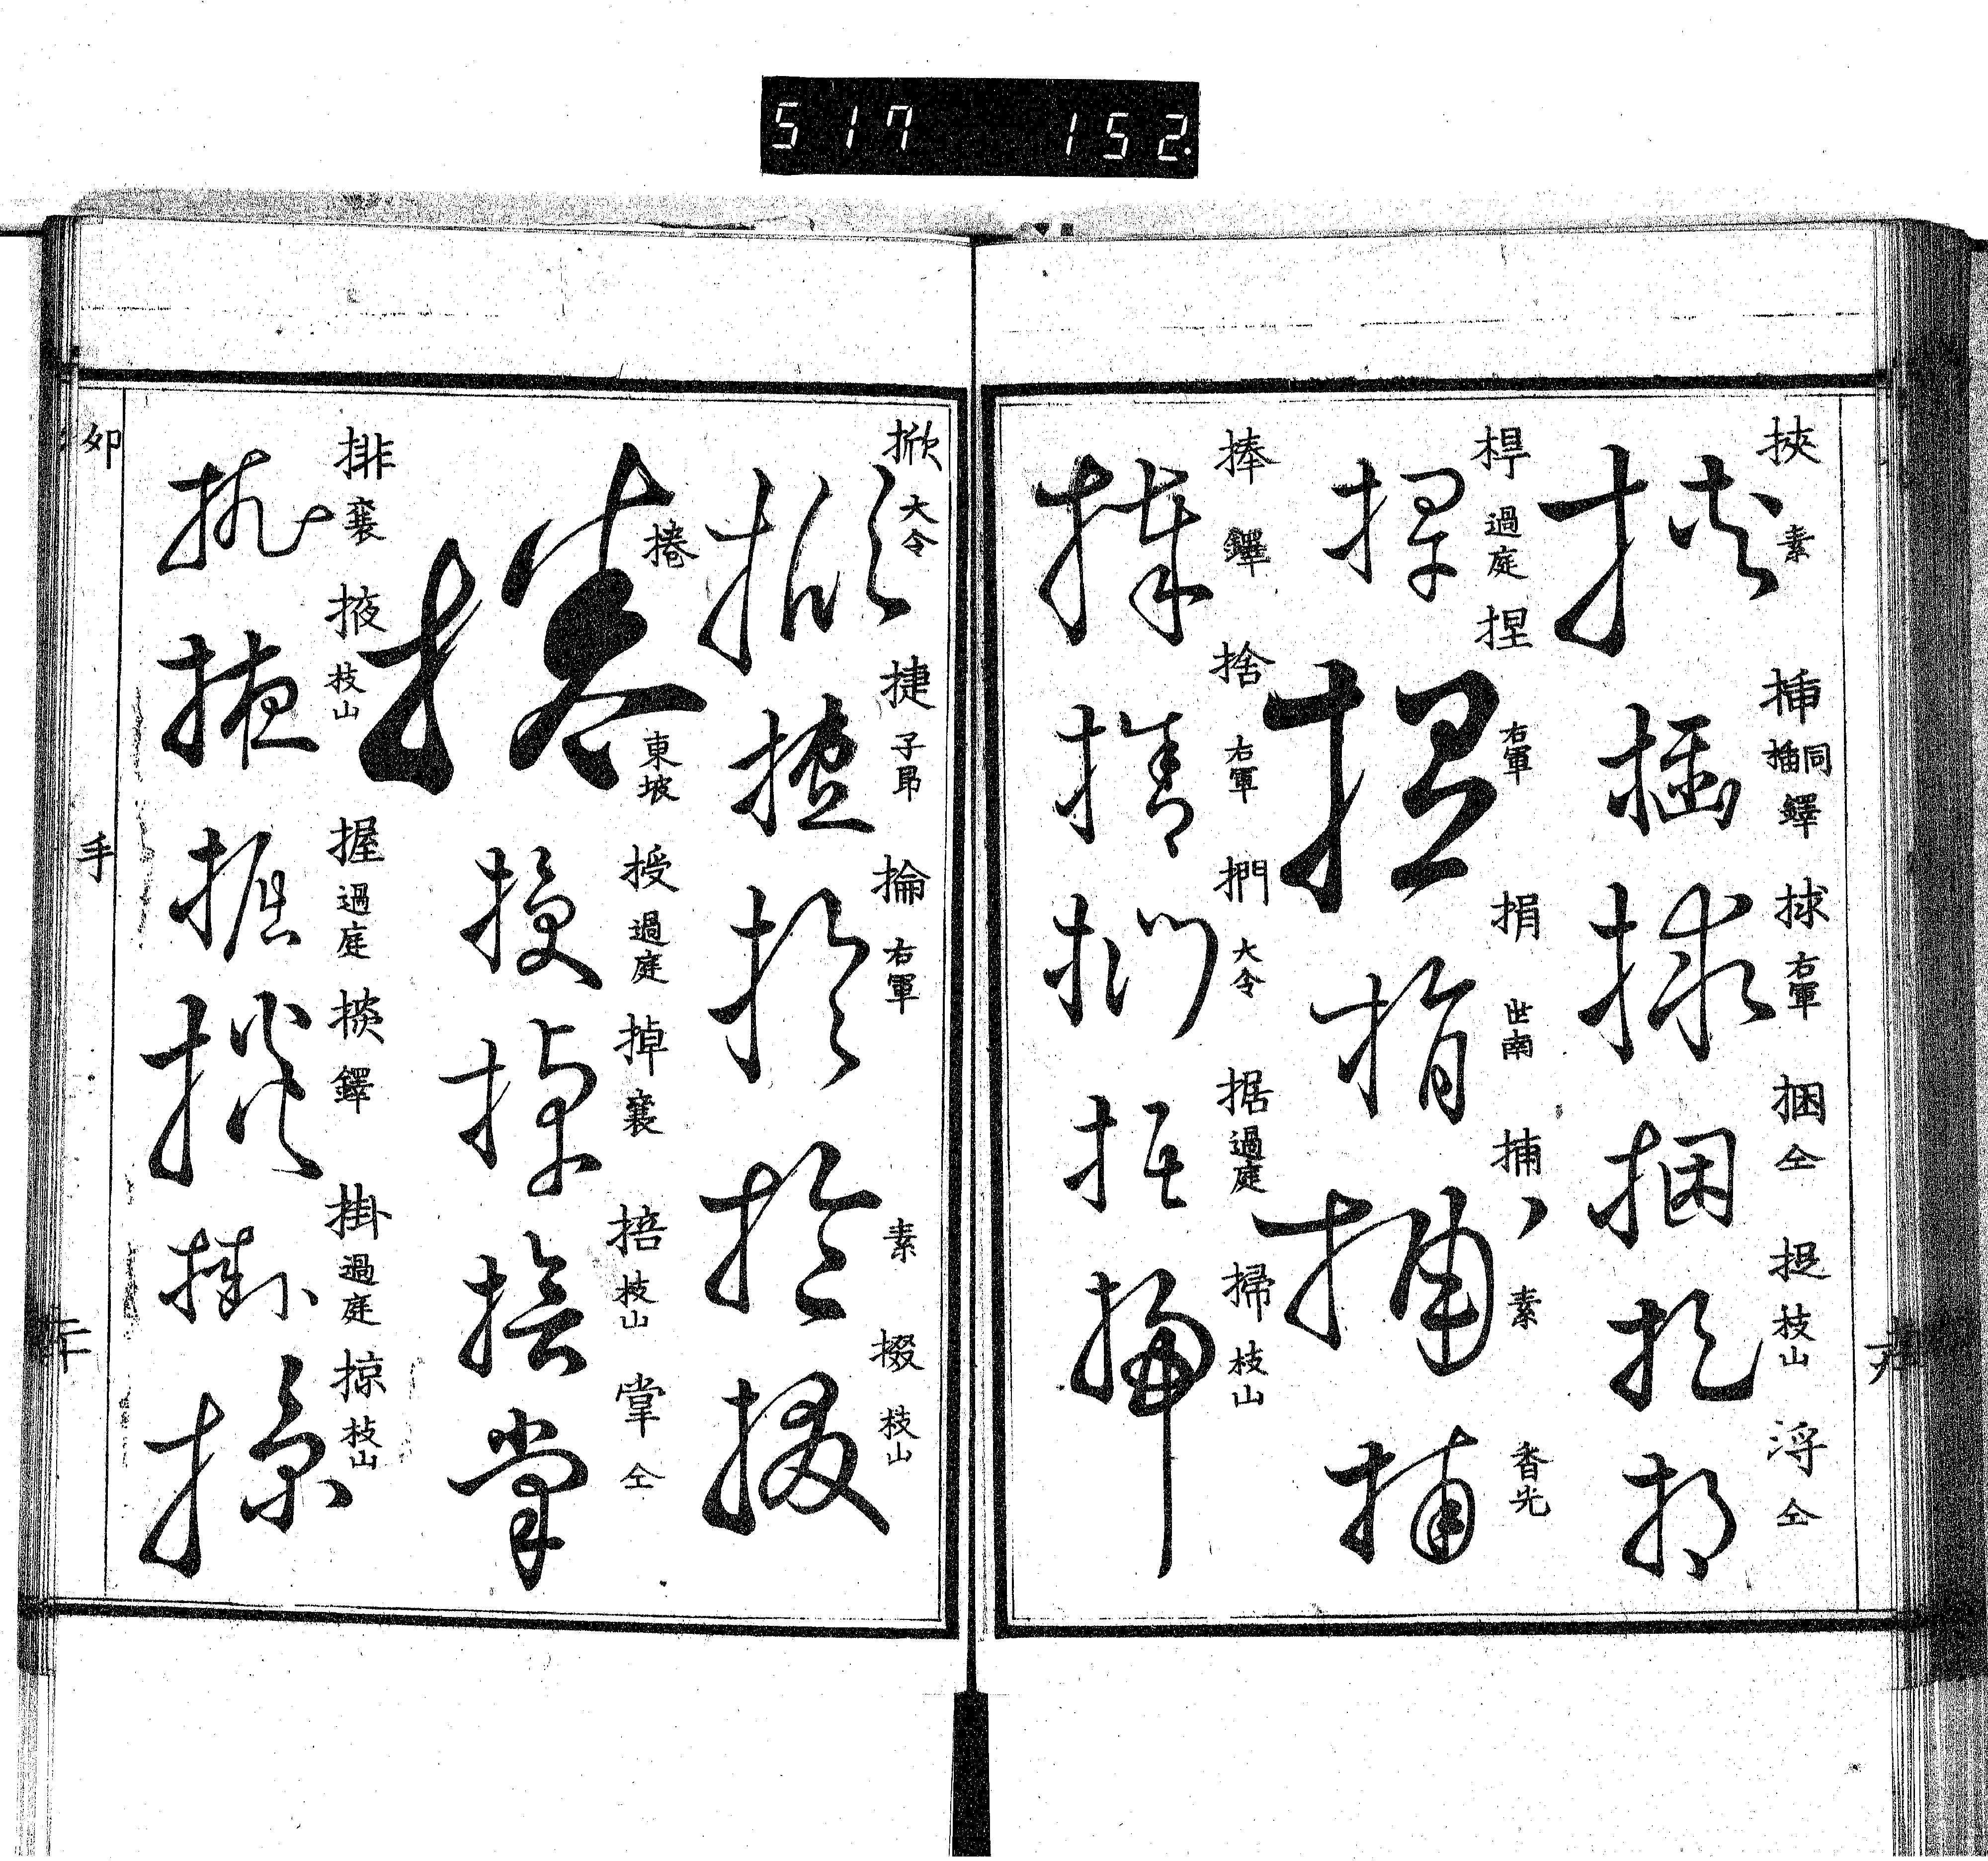 517 152.
挾 素 挿 插同 鐸 捄 右軍 捆 仝 捉 枝山 捋 仝
捍 過庭 捏 右軍 捐 世南 捕 素 香光
捧 鐸 捨 右軍 捫 大令 据 過庭 掃 枝山
掀 大令 捷 子昂 掄 右軍 素 掇 枝山
捲 東坡 授 過庭 掉 襄 掊 枝山 掌 仝
排 襄 掖 枝山 握 過庭 掞 鐸 掛 過庭 掠 枝山
卯 手